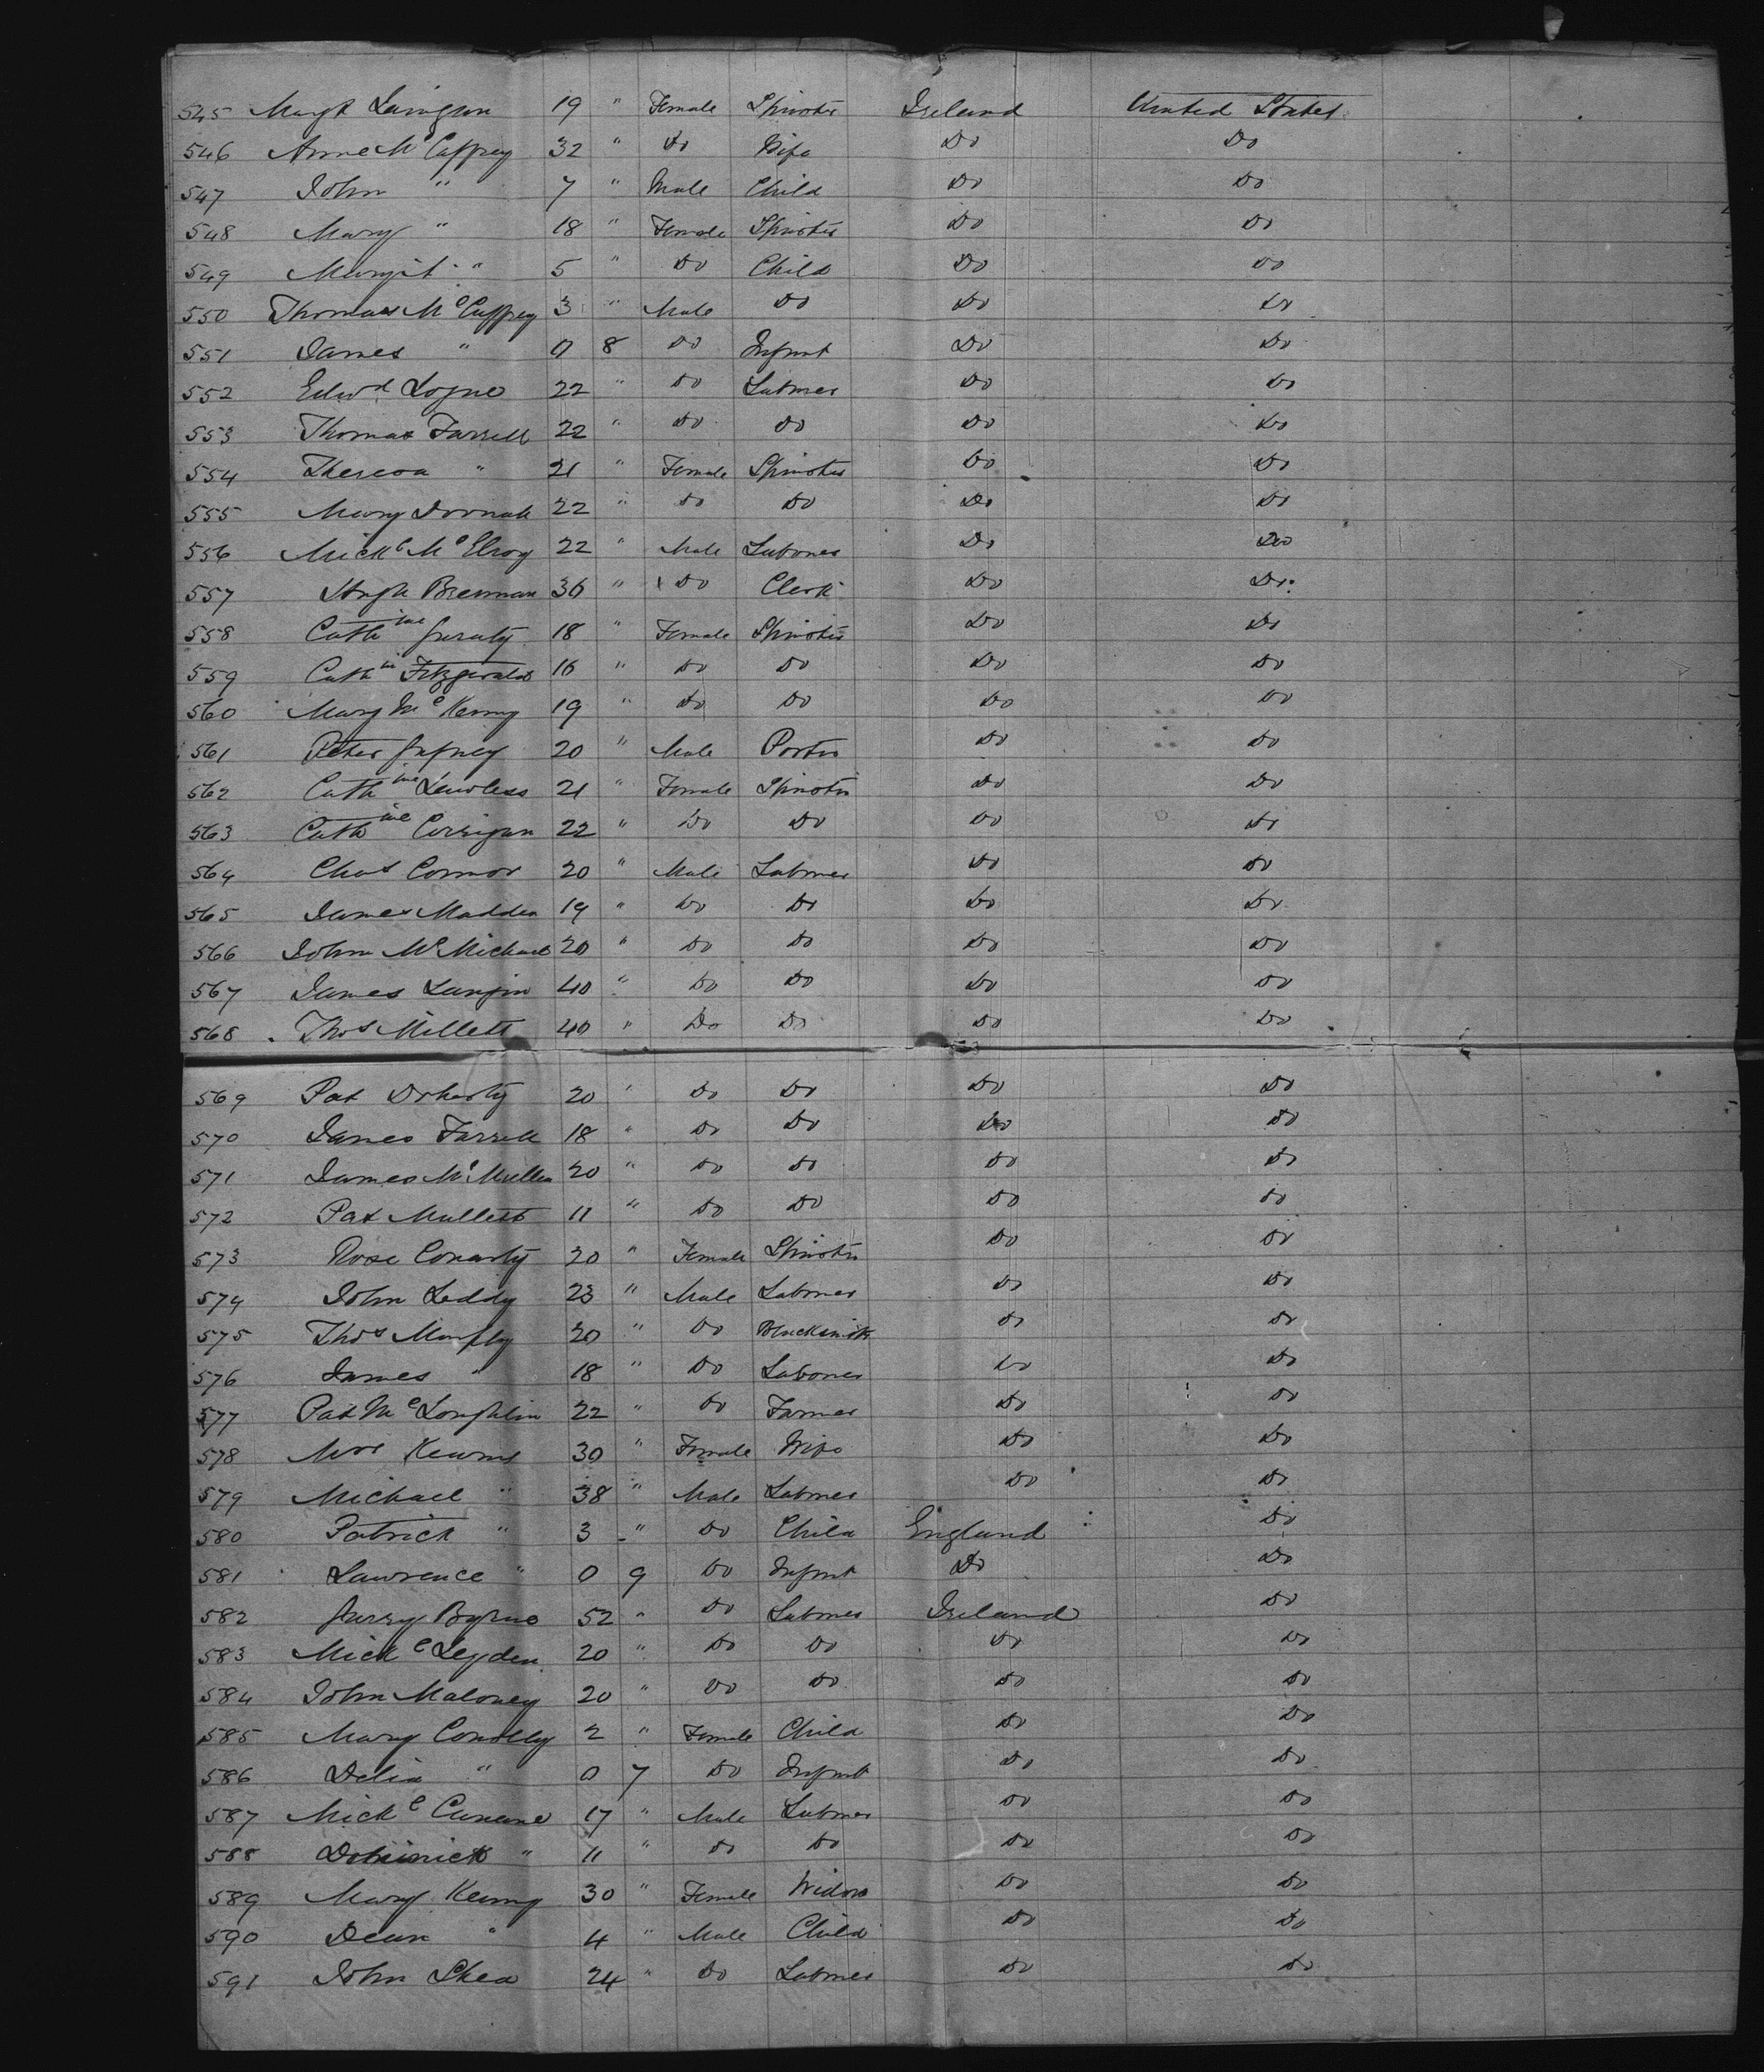 545 Margt Lanigan 19 " Female Spinster Ireland United States
546 Anne McCaffrey 32 " Do Wife Do Do
547 John " 7 " Male Child Do Do
548 Mary " 18 " Female Spinster Do Do
549 Margit " 5 " Do Child Do Do
550 Thomas McCaffrey 3 " Male Do Do Do
551 James " 0 8 Do Infant Do Do
552 Edwd Logue 22 " Do Labourer Do Do
553 Thomas Farrell 22 " Do Do Do Do
554 Theresa " 21 " Female Spinster Do Do
555 Mary 22 " Do Do Do Do
556 Mickl McElroy 22 " Male Labourer Do Do
557 Hugh Brennan 36 " Do Clerk Do Do
558 Cathine Geraty 18 " Female Spinster Do Do
559 Cathin Fitzgerald 16 " Do Do Do Do
560 Mary McKenny 19 " Do Do Do Do
561 Peter Gafney 20 " Male Porter Do Do
562 Cathine Lawless 21 " Female Spinster Do Do
563 Cathine Corrigan 22 " Do Do Do Do
564 Chas Connor 20 " Male Labourer Do Do
565 James Madden 19 " Do Do Do Do
566 John McMichael 20 " Do Do Do Do
567 James 40 " Do Do Do Do
568 Thos Millett 40 " Do Do Do Do
569 Pat Doherty 20 " Do Do Do Do
570 James Farrell 18 " Do Do Do Do
571 James McMullen 20 " Do Do Do Do
572 Pat Mullett 11 " Do Do Do Do
573 Rose Conarty 20 " Female Spinster Do Do
574 John Leddy 23 " Male Labourer Do Do
575 Thos Murphy 20 " Do Blacksmith Do Do
576 James " 18 " Do Labourer Do Do
577 Pat McLoughlin 22 " Do Farmer Do Do
578 Mrs Kearns 30 " Female Wife Do Do
579 Michael " 38 " Male Labourer Do Do
580 Patrick " 3 " Do Child England Do
581 Lawrence " 0 9 Do Infant Do Do
582 Garry Byrne 52 " Do Labourer Ireland Do
583 Mickl Leyden 20 " Do Do Do Do
584 John Maloney 20 " Do Do Do Do
585 Mary Conolly 2 " Female Child Do Do
586 Delia " 0 7 Do Infant Do Do
587 Mickl Cunane 17 " Male Labourer Do Do
588 Dominick " 11 " Do Do Do Do
589 Mary Kenny 30 " Female Widow Do Do
590 " 4 " Male Child Do Do
591 John Shea 24 " Do Labourer Do Do